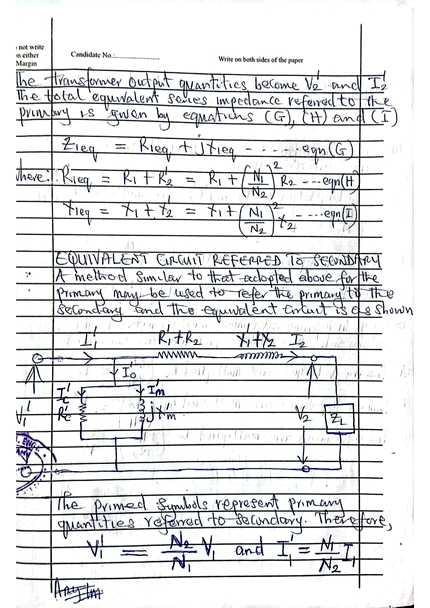 not write
on either
Margin
Candidate No.:
Write on both sides of the paper
The transformer output quantities become V₂' and I₂'
The total equivalent series impedance referred to the
primary is given by equations (G), (H) and (I)
Z₁eq = R₁eq + jX₁eq - - - - - eqn(G)
where: R₁eq = R₁ + R₂' = R₁ + (N₁/N₂)² R₂ --- eqn(H)
X₁eq = X₁ + X₂' = X₁ + (N₁/N₂)² X₂ ---- eqn(I)
EQUIVALENT CIRCUIT REFERRED TO SECONDARY
A method similar to that adopted above for the
primary may be used to refer the primary to the
secondary and the equivalent circuit is as shown
I₁' R₁'+R₂ X₁'+X₂ I₂
I₀'
Ic' Im'
V₁' Rc' jX'm V₂ ZL
The primed symbols represent primary
quantities referred to secondary. Therefore,
V₁' = N₂/N₁ V₁ and I₁' = N₁/N₂ I₁